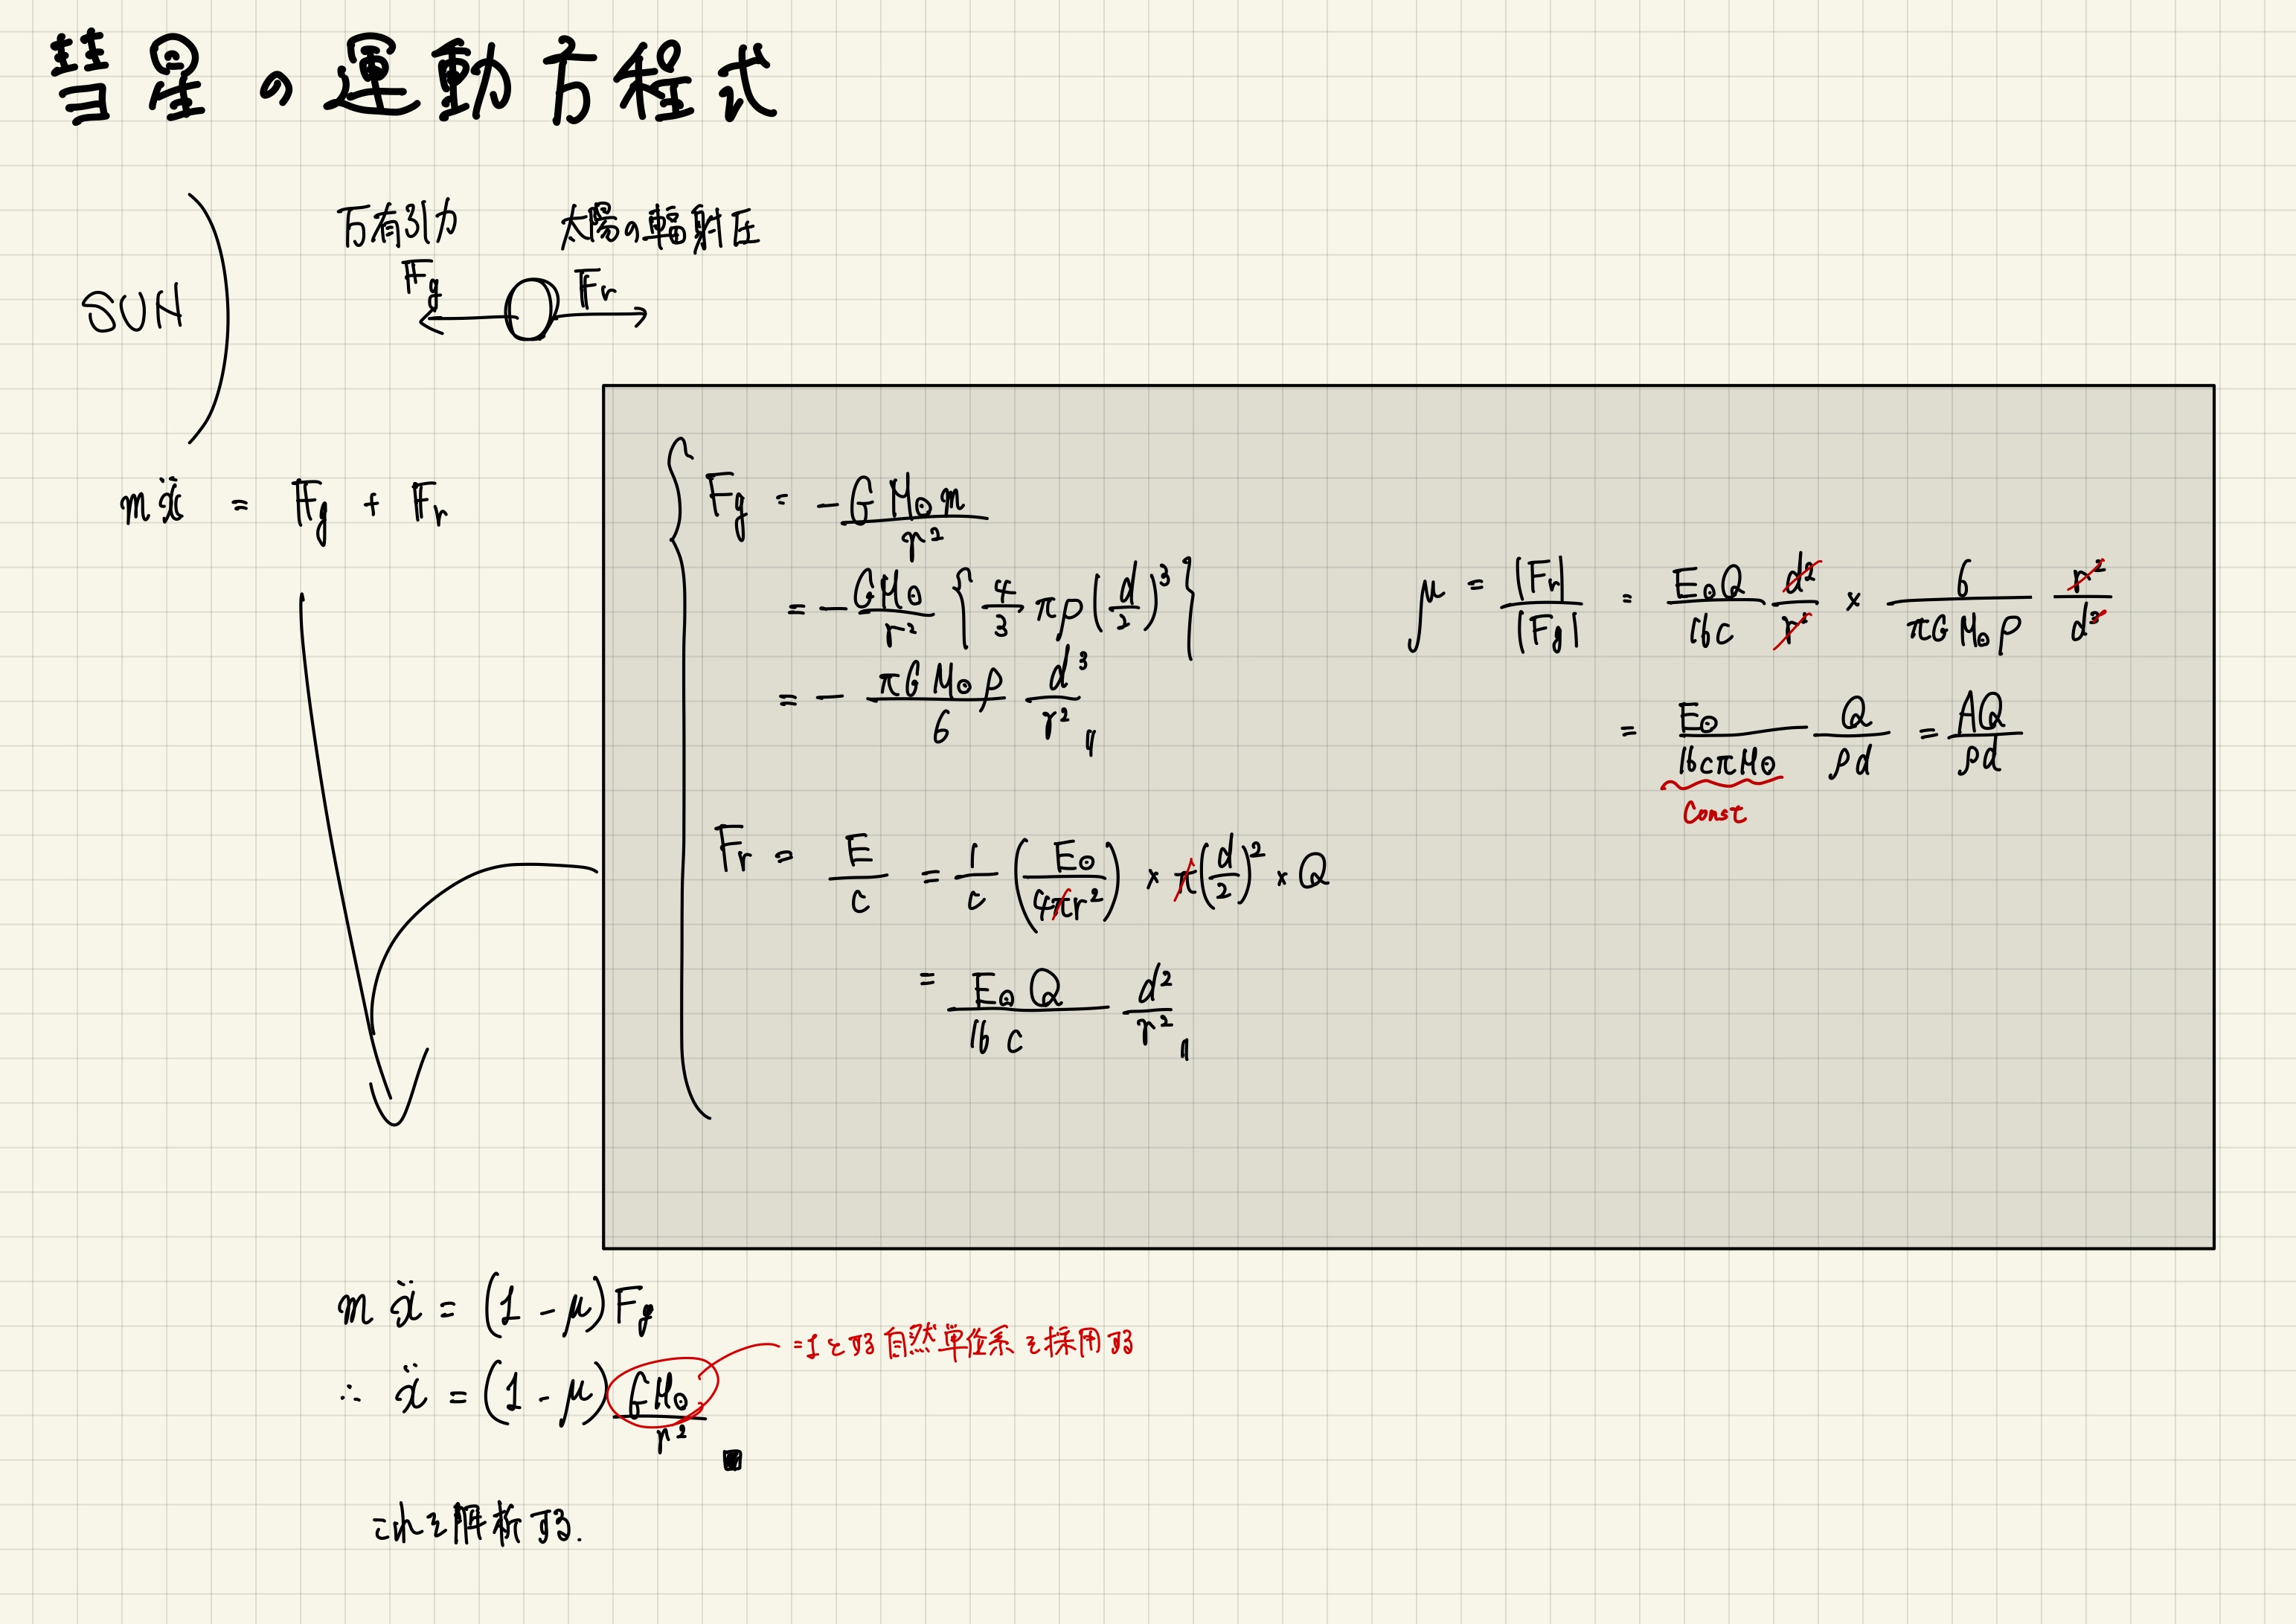 彗星の運動方程式
SUN
万有引力 太陽の輻射圧
𝔽g 𝔽r
mẍ = 𝔽g + 𝔽r
Fg = - GM⊙m / r²
= - GM⊙ / r² { 4/3 πρ (d/2)³ }
= - πGM⊙ρ / 6 d³ / r² 〃
Fr = E / c = 1/c (E⊙ / 4πr²) × π(d/2)² × Q
= E⊙Q / 16c d² / r² 〃
μ = |Fr| / |Fg| = E⊙Q / 16c d² / r² × 6 / πGM⊙ρ r² / d³
= E⊙ / 16cπM⊙ Q / ρd = AQ / ρd
Const
mẍ = (1 - μ)Fg
=1とする自然単位系を採用する
∴ ẍ = (1 - μ) GM⊙ / r²
これを解析する.